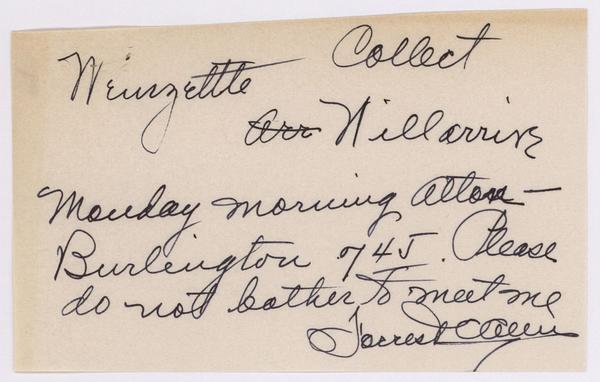 Collect
Will arrive
Monday morning Alton–
Burlington 745. Please
do not bother to meet me
Forrest C Allen